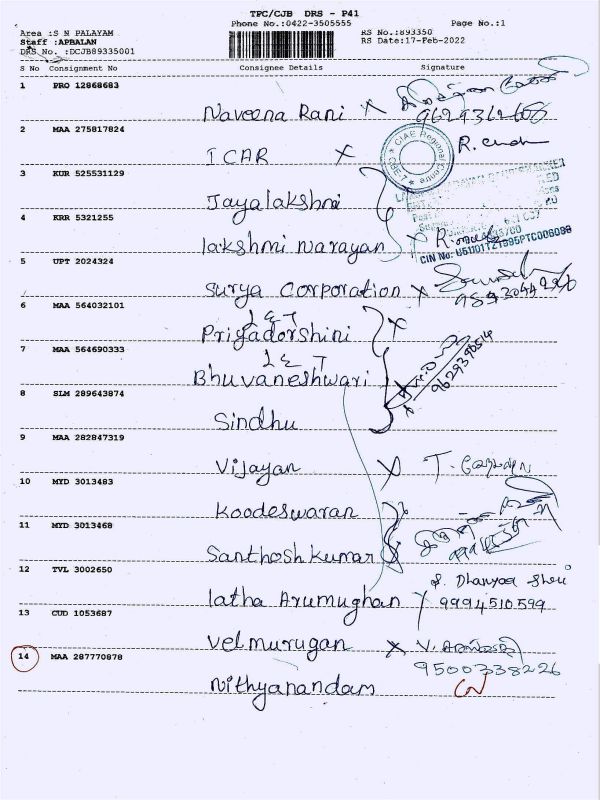 TPC/CJB DRS - P41
Phone No.:0422-3505555 Page No.:1
Area :S N PALAYAM RS No.:893350
Staff :APBALAN RS Date:17-Feb-2022
DRS No. :DCJB89335001
S No Consignment No Consignee Details Signature
1 PRO 12868683
Naveena Rani X 9629362608
2 MAA 275817824
ICAR X
CIAE Regional Centre
3 KUR 525531129
Jayalakshmi
4 KRR 5321255
lakshmi narayan X
CIN No: U51101TZ1995PTC006089
5 UPT 2024324
Surya Corporation X
6 MAA 564032101
L & T
Priyadorshini X
7 MAA 564690333
L & T
Bhuvaneshwari X
9629390514
8 SLM 289643874
Sindhu
9 MAA 282847319
Vijayan X T.
10 MYD 3013483
Koodeswaran
11 MYD 3013468
Santhosh Kumar
12 TVL 3002650
S. Dhanyaa Shri
latha Arumughan X 9994510599
13 CUD 1053687
Velmurugan X V.
14 MAA 287770878
9500338226
Nithyanandam